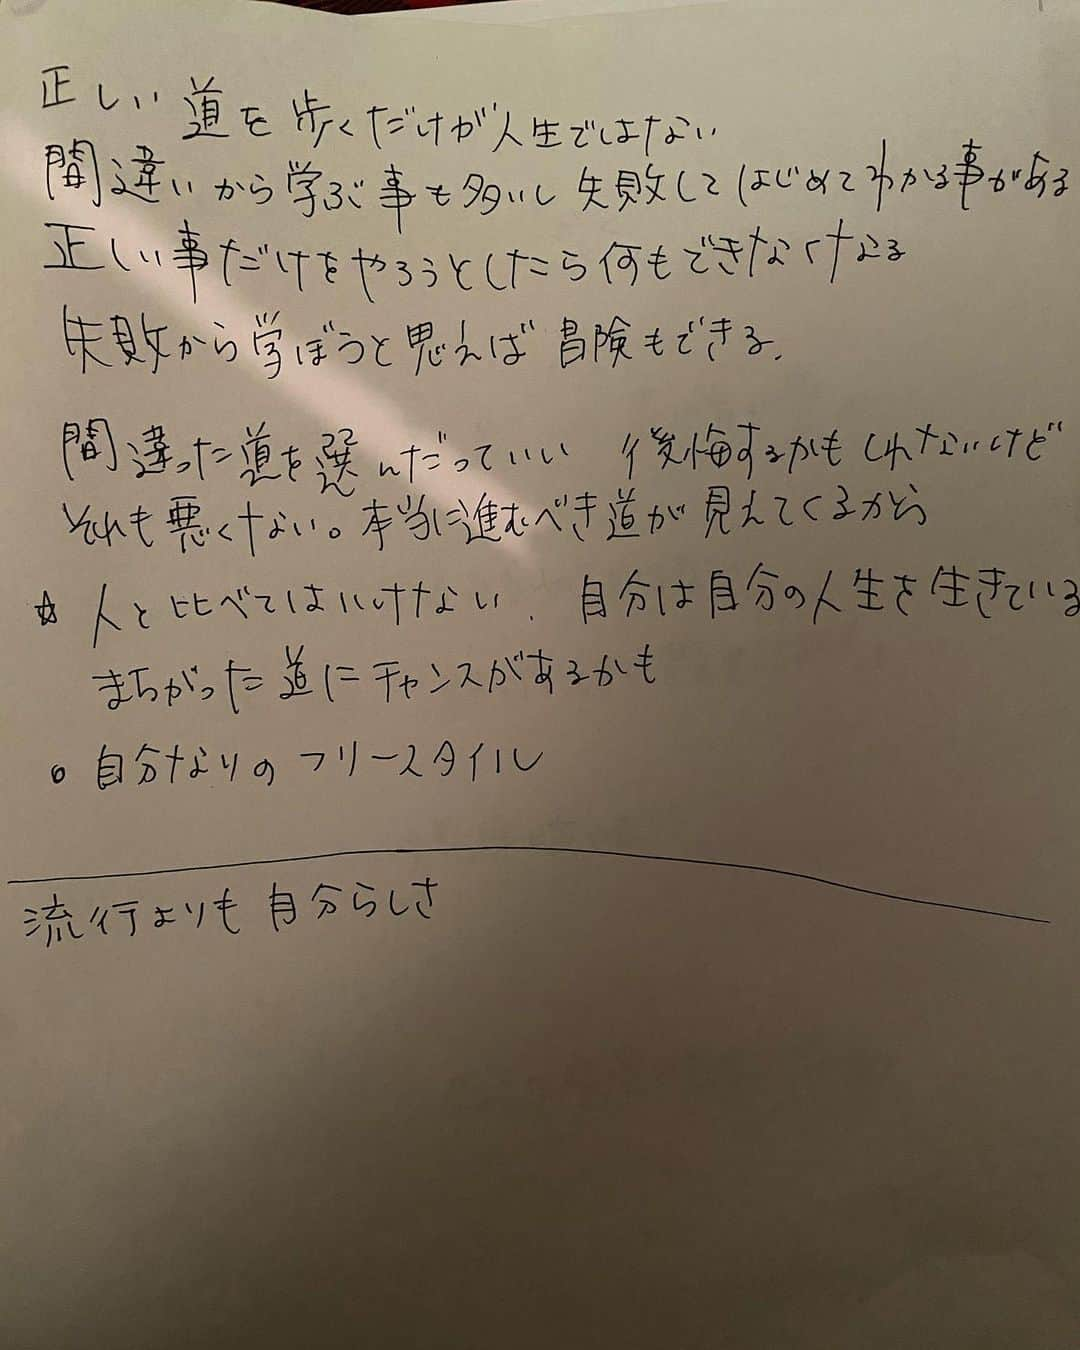 正しい道を歩くだけが人生ではない
間違いから学ぶ事も多いし 失敗してはじめてわかる事がある
正しい事だけをやろうとしたら何もできなくなる
失敗から学ぼうと思えば冒険もできる.
間違った道を選んだっていい 後悔するかもしれないけど
それも悪くない。本当に進むべき道が見えてくるから
☆ 人と比べてはいけない. 自分は自分の人生を生きている
まちがった道にチャンスがあるかも
○ 自分なりのフリースタイル
流行よりも自分らしさ